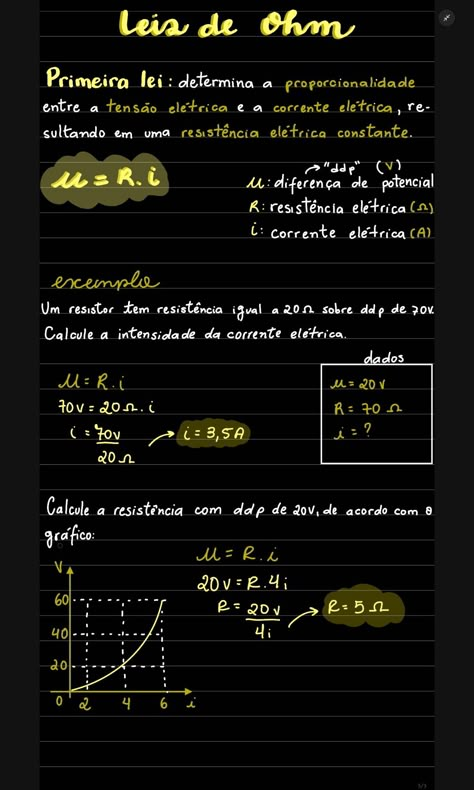 Leis de Ohm
Primeira lei: determina a proporcionalidade
entre a tensão elétrica e a corrente elétrica, re-
sultando em uma resistência elétrica constante.
→ "ddp" (V)
U = R.i
U: diferença de potencial
R: resistência elétrica (Ω)
i: corrente elétrica (A)
exemplo
Um resistor tem resistência igual a 20Ω sobre ddp de 70v.
Calcule a intensidade da corrente elétrica.
dados
U = R.i
70v = 20Ω.i
i = 70v
20Ω
→ i = 3,5A
U = 20v
R = 70Ω
i = ?
Calcule a resistência com ddp de 20v, de acordo com o
gráfico:
U = R.i
20v = R.4i
R = 20v
4i
→ R = 5Ω
V
60
40
20
0 2 4 6 i
1/1